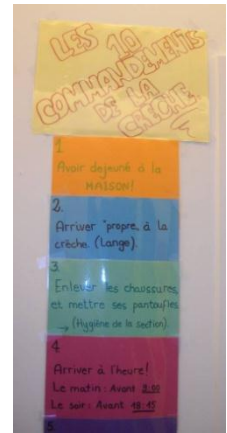 LES 10
COMMANDEMENTS
DE LA
CRÈCHE
1.
Avoir dejeuné à la
MAISON!
2.
Arriver "propre" à la
crèche. (Lange).
3.
Enlever les chaussures,
et mettre ses pantoufles
→ (Hygiène de la section).
4
Arriver à l'heure!
Le matin: Avant 9:00
Le soir: Avant 18:15
5